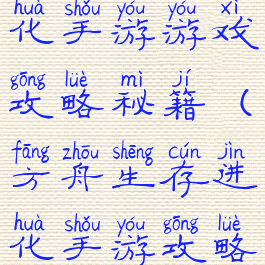 huà shǒu yóu yóu xì
化手游游戏
gōng lüè mì jí
攻略秘籍(
fāng zhōu shēng cún jìn
方舟生存进
huà shǒu yóu gōng lüè
化手游攻略